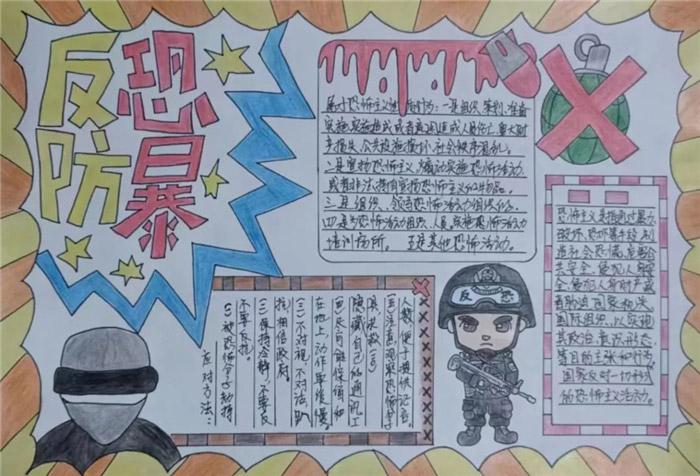 反恐
防暴
属于恐怖主义性质行为:一是组织、策划、准备
实施、实施造成或者意图造成人员伤亡、重大财
产损失、公共设施损坏、社会秩序混乱。
二是宣扬恐怖主义、煽动实施恐怖活动,
或者非法持有宣扬恐怖主义的物品。
三是组织、领导恐怖活动组织的。
四是为恐怖活动组织、人员、实施恐怖活动
培训场所。 五是其他恐怖活动。
恐怖主义是指通过暴力
破坏、恐吓等手段,制
造社会恐慌,危害公
共安全、侵犯人身
财产
国际组织,以实现
其政治、意识形态
等目的主张和行为。
国家反对一切形式
的恐怖主义活动。
应对方法:
(一)被恐怖分子劫持
不要反抗。
(二)保持冷静,不要反
抗,相信政府。
(三)不对视,不对话,趴
在地上,动作要缓慢。
(四)尽可能保留和
隐藏自己的通讯工
具 求救。(五)
注意观察恐怖分子
人数,便于提供证言。
反恐